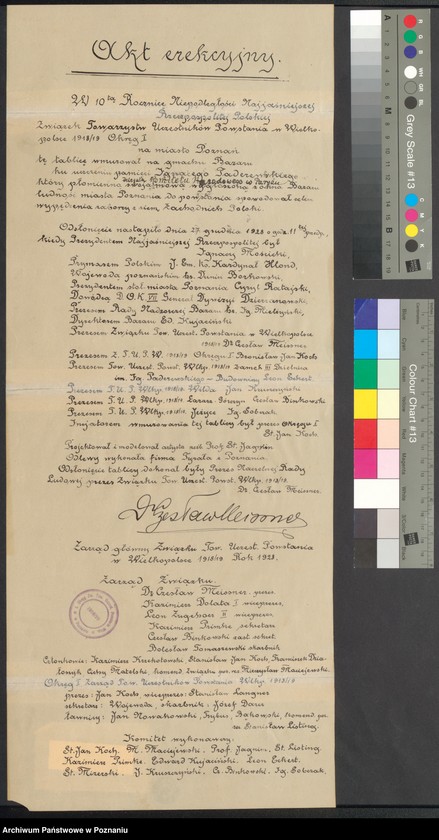 Akt erekcyjny.
W 10tą Rocznicę Niepodległości Najjaśniejszej
Rzeczypospolitej Polskiej
Związek Towarzystw Uczestników Powstania w Wielko-
polsce 1918/19 Okrąg I
na miasto Poznań
tę tablicę wmurował na gmachu Bazaru
ku uczczeniu pamięci Ignacego Paderewskiego
który płomienną wygłoszoną z okna Bazaru
ludności miasta Poznania do powstania spowodował celem
wypędzenia zaborcy z ziem Zachodnich Polski.
Odsłonięcie nastąpiło dnia 27 grudnia 1928 o godz. 11
kiedy Prezydentem Najjaśniejszej Rzeczypospolitej był
Ignacy Mościcki,
Prymasem Polskim J. Em. Ks. Kardynał Hlond,
Wojewodą poznańskim hr. Dunin Borkowski,
Prezydentem stoł. miasta Poznania Cyryl Ratajski,
Dowódcą D.O.K. VII Generał Dywizji Dzierżanowski,
Prezesem Rady Nadzorczej Bazaru hr. Ig. Mielżyński,
Dyrektorem Bazaru Ed. Kujaciński
Prezesem Związku Tow. Uczest. Powstania w Wielkopolsce
1918/19 Dr Czesław Meissner
Prezesem Z.T.U.P.W. 1918/19 Okręgu I Stanisław Jan Koch
Prezesem Tow. Uczest. Powst. Wlkp. 1918/19 Zamek III Dzielnica
im. Ig. Paderewskiego Budowniczy Leon Eckert.
Prezesem T.U.P. Wlkp. 1918/19 Wilda Jan Kruszyński
Prezesem T.U.P. Wlkp. 1918/19 Łazarz Górczyn Czesław Binkowski
Prezesem T.U.P. Wlkp. 1918/19 Jeżyce Ig. Cobrak.
Inicjatorem wmurowania tej tablicy był prezes Okręgu I
St. Jan Koch.
Projektował i modelował artysta rzeź. Prof. St. Jagmin
Odlewy wykonała firma Pyrala z Poznania
Odsłonięcia tablicy dokonał były Prezes Naczelnej Rady
Ludowej prezes Związku Tow. Uczest. Powst. Wlkp. 1918/19.
Dr. Czesław Meissner.
Dr Czesław Meissner
Zarząd główny Związku Tow. Uczest. Powstania
w Wielkopolsce 1918/19 Rok 1928.
Zarząd Związku.
Dr. Czesław Meissner prezes
Kazimierz Dolata I wiceprezes,
Leon II wiceprezes,
Kazimierz Pruncke sekretarz
Czesław Binkowski zast. sekret.
Bolesław Tomaszewski skarbnik
Członkowie: Kazimierz Stanisław Jan Koch, Franciszek
Matelski, komend. Związku Mieczysław Maciejewski.
Okrąg I Zarząd Tow. Uczestników Powstania Wlkp. 1918/19
prezes: Jan Koch wiceprezes: Stanisław Langner
sekretarz: Wojewoda, skarbnik: Józef
ławnicy: Jan Nowakowski, Bąkowski, komend.
Stanisław Listing.
Komitet wykonawczy:
St. Jan Koch. M. Maciejewski. Prof. Jagmin. St. Listing.
Kazimierz Pruncke. Edward Kujaciński. Leon Eckert.
St. J. Kruszyński, Cz. Binkowski. Ig. Cobrak.
Grey Scale #13
A
M
B
R
G
B
W
C
M
Y
K
Colour Chart #13
Blue
Cyan
Green
Yellow
Red
Magenta
White
Black
Archiwum Państwowe w Poznaniu
www.szukajwarchiwach.gov.pl